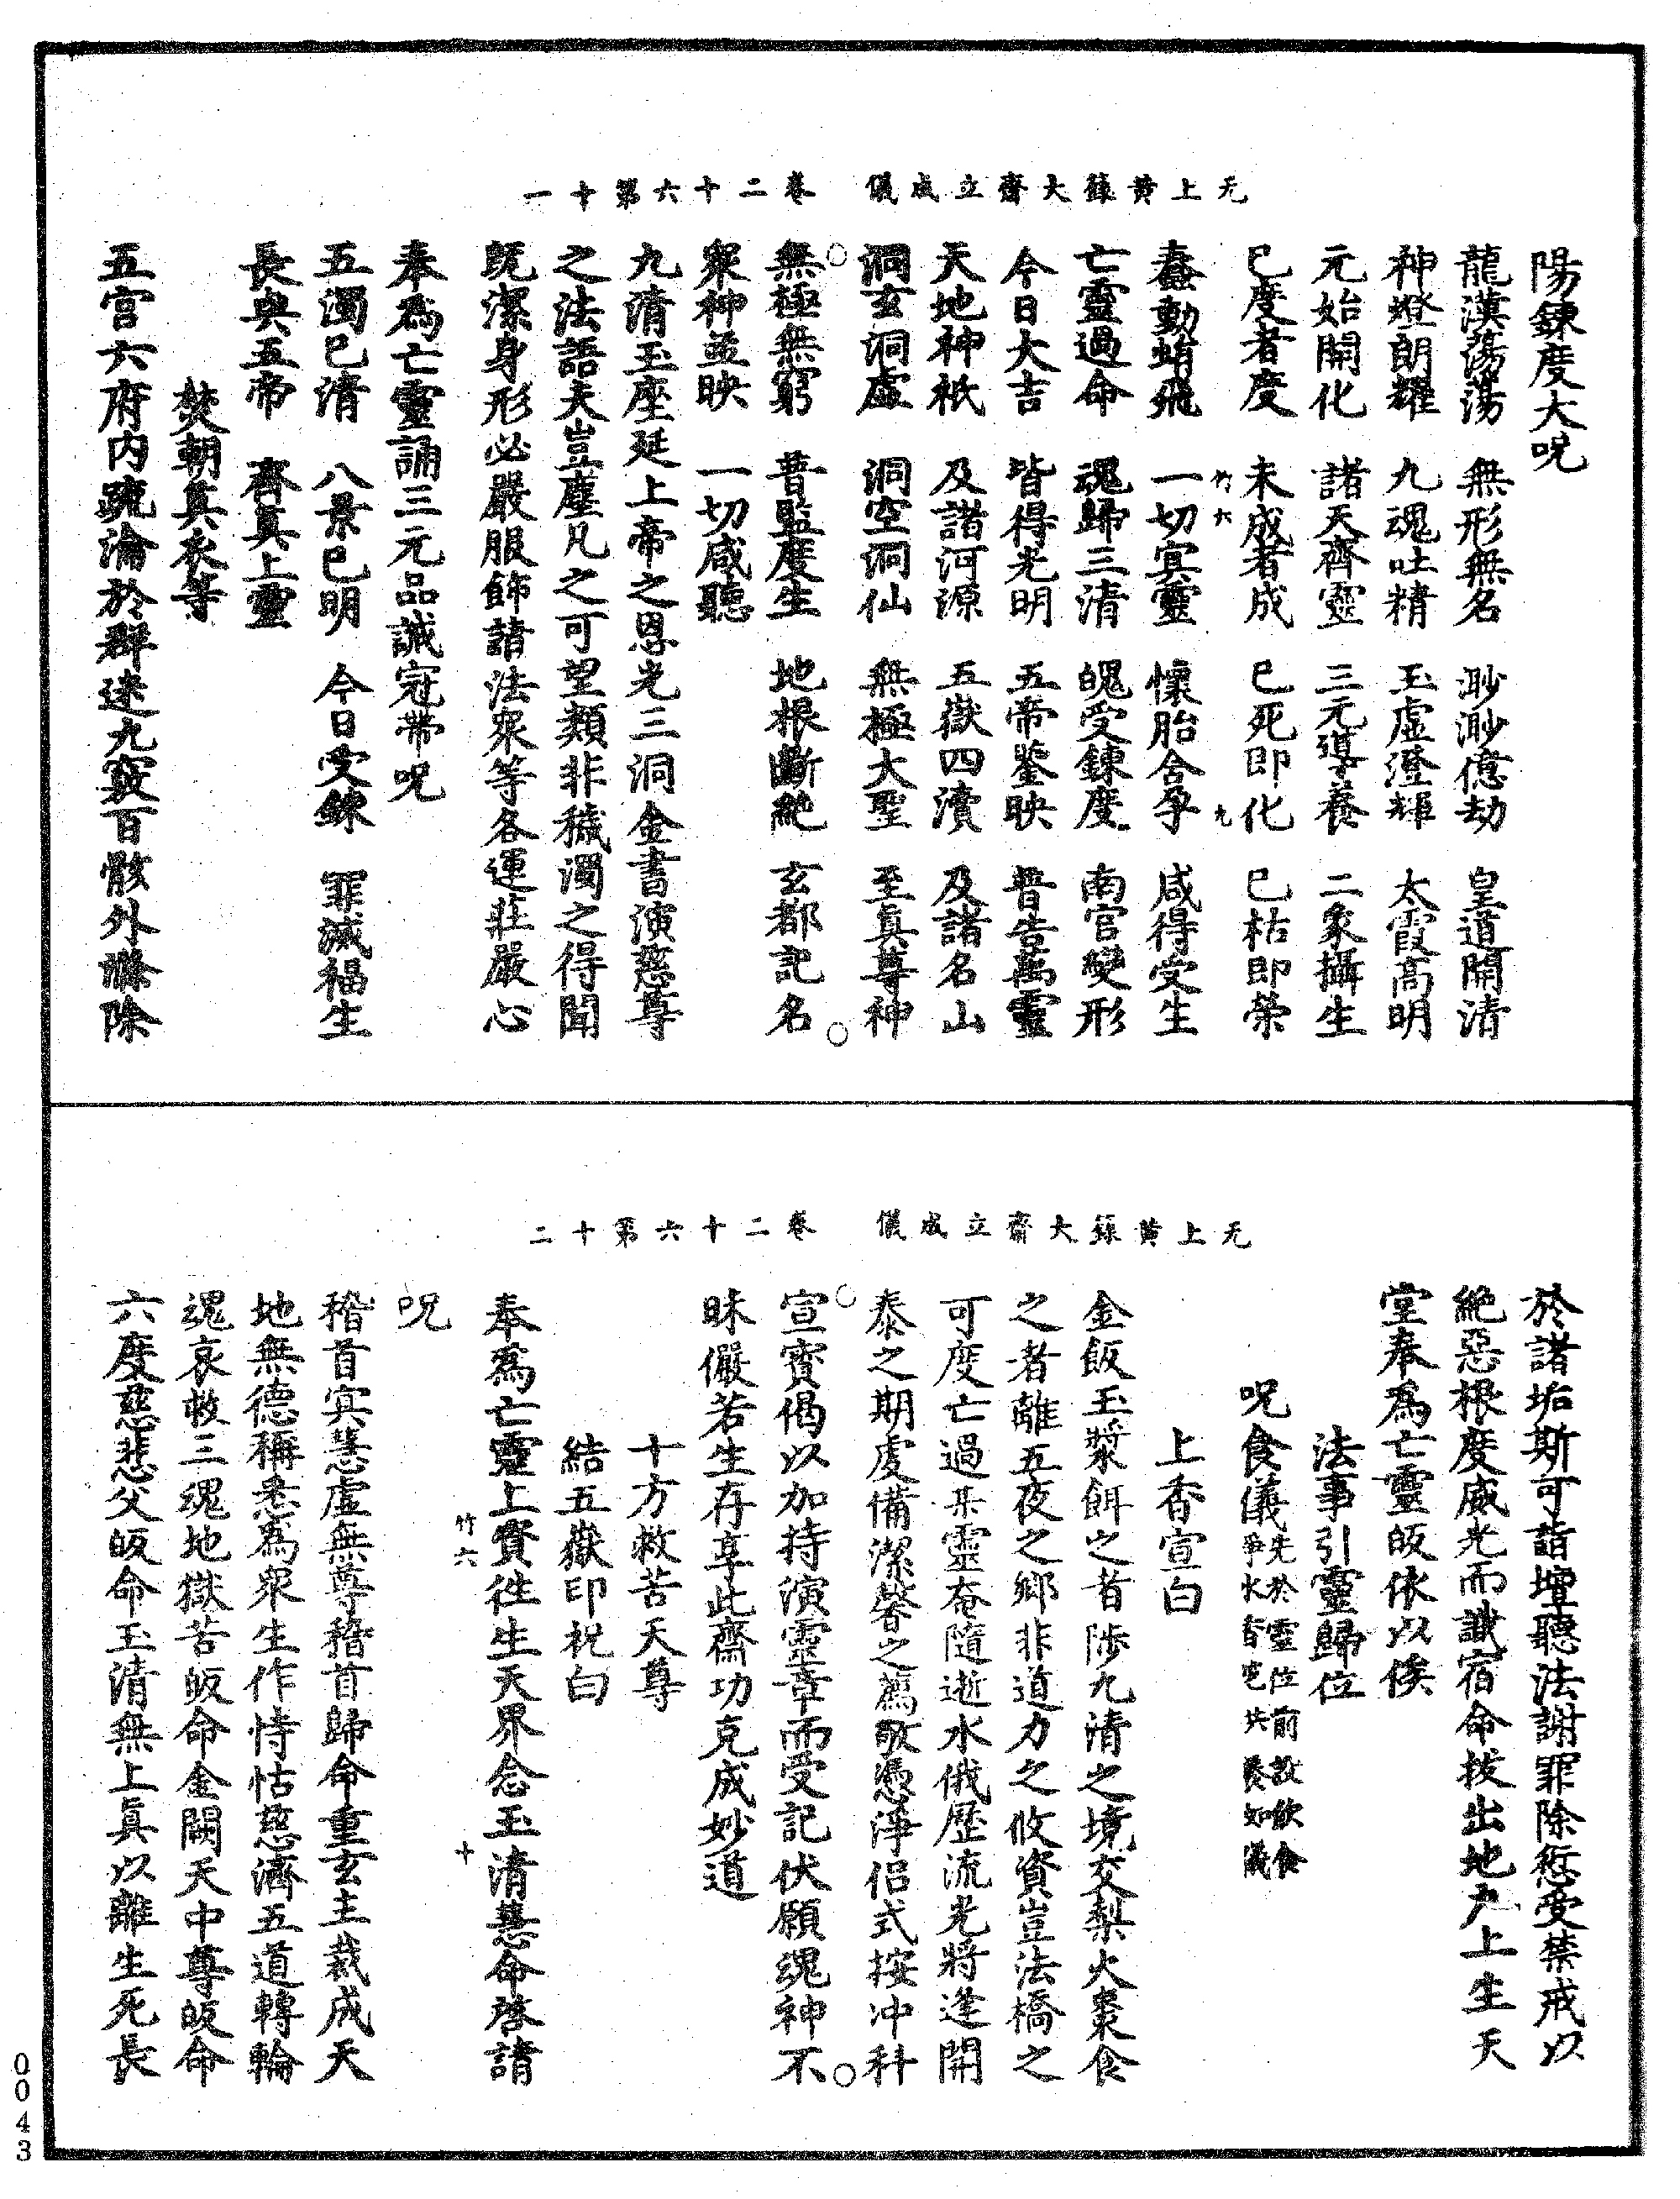 无上黄籙大齋立成儀　卷二十六第十一
陽鍊度大呪
龍漢蕩蕩　無形無名　渺渺億劫　皇道開清
神燈朗耀　九魂吐精　玉虛澄輝　太霞高明
元始開化　諸天齊靈　三元導養　二象攝生
已度者度　未成者成　已死即化　已枯即榮
竹六　九
蠢動蜎飛　一切㝠靈　懷胎含孕　咸得受生
亡靈過命　魂歸三清　魄受鍊度　南宮變形
今日大吉　皆得光明　五帝鑒映　普告萬靈
天地神祇　及諸河源　五嶽四瀆　及諸名山
洞玄洞虛　洞空洞仙　無極大聖　至真尊神
無極無窮　普監度生　地根斷絶　玄都記名
衆神並映　一切咸聽
九清玉座延上帝之恩光三洞金書演慈尊
之法語夫豈塵凡之可望類非穢濁之得聞
既潔身形必嚴服飾諸法衆等各運莊嚴心
奉為亡靈誦三元品誡冠帶呪
五濁已清　八景已明　今日受鍊　罪滅福生
長與五帝　齊真上靈
焚朝真衣等
五宫六府内疏淪於群迷九竅百骸外滌除
无上黄籙大齋立成儀　卷二十六第十二
於諸垢斯可詣壇聽法謝罪除愆受禁戒以
絶惡根度威光而識宿命拔出地户上生天
堂奉為亡靈皈依以俟
法事引靈歸位
呪食儀先於靈位前設飲食爭水香宅共養如儀
上香宣白
金飯玉漿餌之者陟九清之境交梨火棗食
之者離五夜之鄉非道力之攸資豈法橋之
可度亡過某靈奄隨逝水俄歷流光將逢開
泰之期虔備潔馨之薦敬憑淨侣式按冲科
宣寶偈以加持演靈章而受記伏願魂神不
昧儼若生存享此齋功克成妙道
十方救苦天尊
結五嶽印祝曰
奉為亡靈上寶往生天界念玉清慧命啓請
竹六　十
呪
稽首㝠慧虛無尊稽首歸命重玄主裁成天
地無德稱悉為衆生作恃怙慈濟五道轉輪
魂哀救三魂地獄苦皈命金闕天中尊皈命
六度慈悲父皈命玉清無上真以離生死長
0043